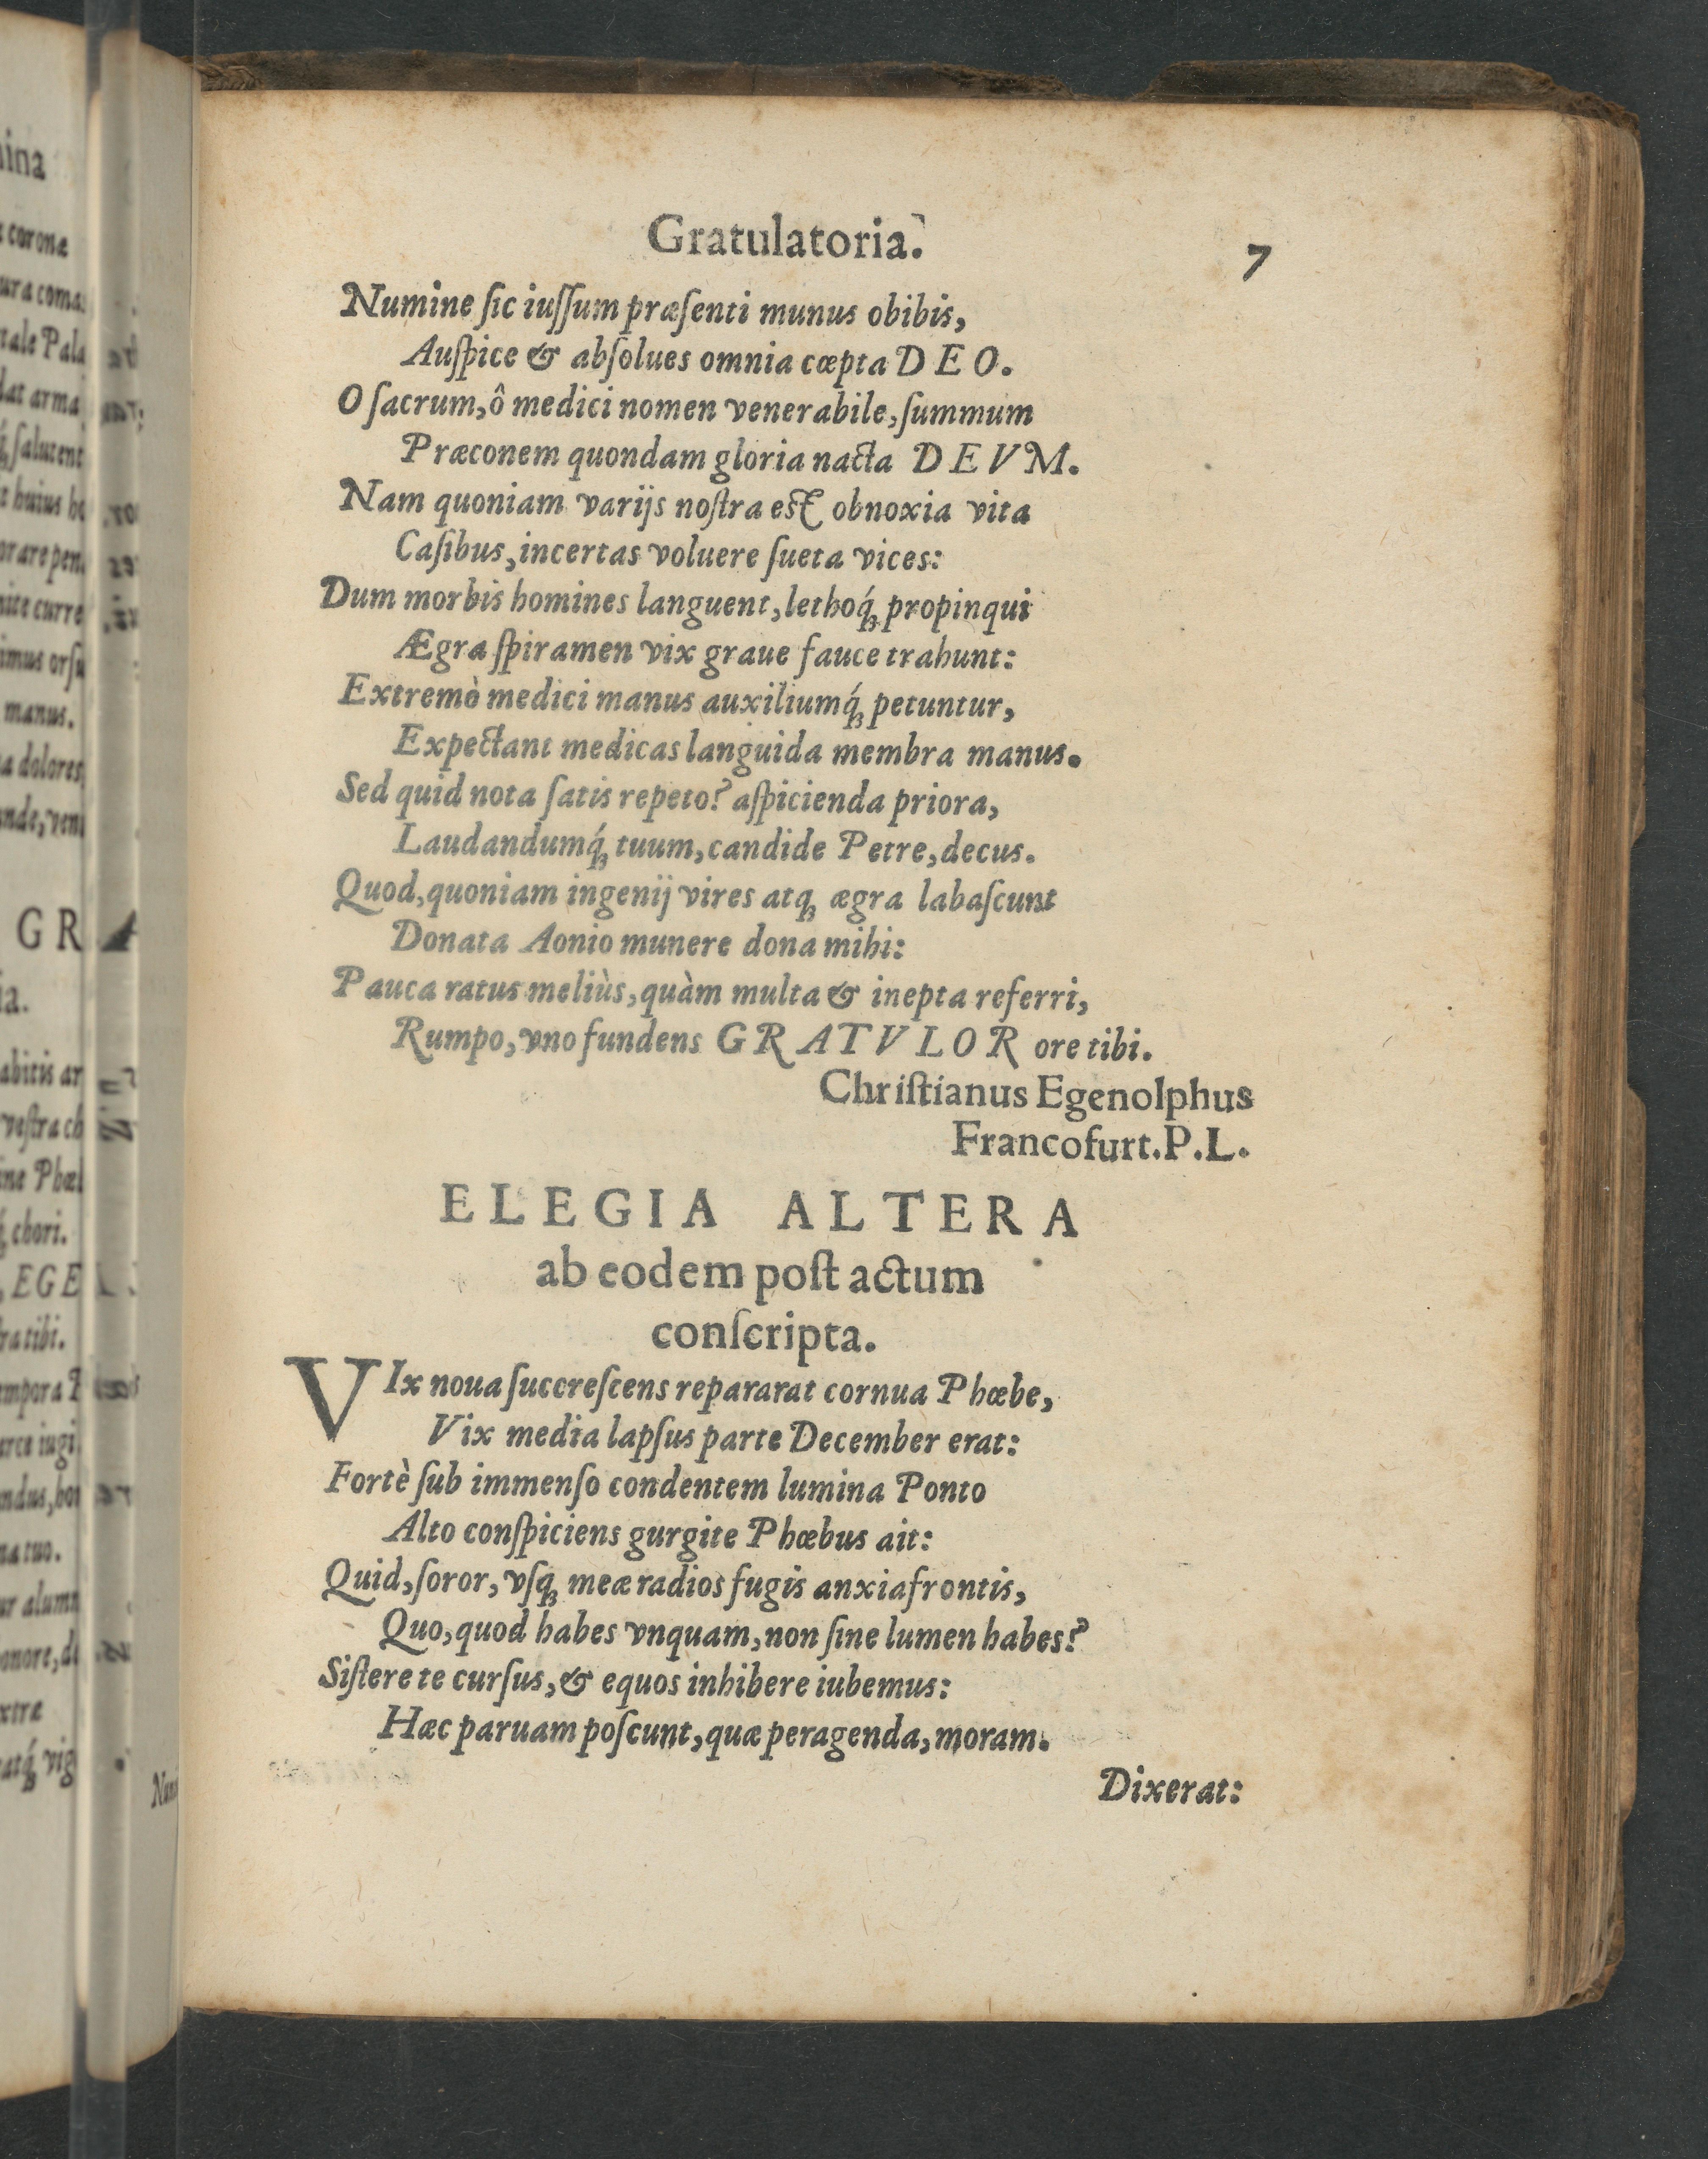 Gratulatoria. 7
Numine ſic iuſſum præſenti munus obibis,
Auſpice & abſolues omnia cœpta DEO.
O ſacrum, ô medici nomen venerabile, ſummum
Præconem quondam gloria nacta DEVM.
Nam quoniam varijs noſtra est obnoxia vita
Caſibus, incertas voluere ſueta vices:
Dum morbis homines languent, lethoq́ꝫ propinqui
Ægra ſpiramen vix graue fauce trahunt:
Extremò medici manus auxiliumq́ꝫ petuntur,
Expectant medicas languida membra manus.
Sed quid nota ſatis repeto? aſpicienda priora,
Laudandumq́ꝫ tuum, candide Petre, decus.
Quod, quoniam ingenij vires atqꝫ ægra labaſcunt
Donata Aonio munere dona mihi:
Pauca ratus meliùs, quàm multa & inepta referri,
Rumpo, vno fundens GRATVLOR ore tibi.
Chriſtianus Egenolphus
Francofurt. P. L.
ELEGIA ALTERA
ab eodem poſt actum
conſcripta.
VIx noua ſuccreſcens repararat cornua Phœbe,
Vix media lapſus parte December erat:
Fortè ſub immenſo condentem lumina Ponto
Alto conſpiciens gurgite Phœbus ait:
Quid, ſoror, vſqꝫ meæ radios fugis anxia frontis,
Quo, quod habes vnquam, non ſine lumen habes?
Siſtere te curſus, & equos inhibere iubemus:
Hæc paruam poſcunt, quæ peragenda, moram.
Dixerat: